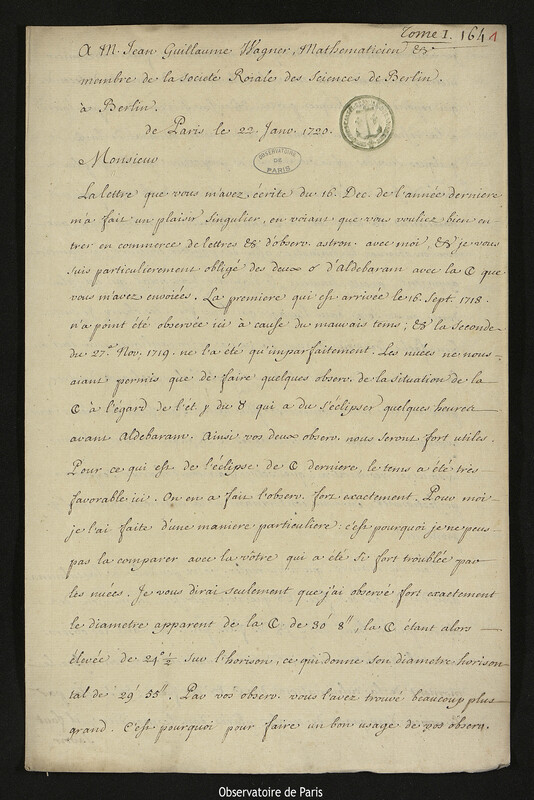 Tome I. 1641
A M. Jean Guillaume Wagner, Mathematicien &
membre de la societé Roiale des Sciences de Berlin.
à Berlin.
de Paris le 22. Janv. 1720.
OBSERVATOIRE
DE
PARIS
Monsieur
La lettre que vous m'avez écrite du 16. Dec. de l'année derniere
m'a fait un plaisir singulier, en voiant que vous vouliez bien en-
trer en commerce de lettres & d'observ. astron. avec moi, & je vous
suis particulierement obligé des deux ☌ d'Aldebaram avec la ☾ que
vous m'avez envoiées. La premiere qui est arrivée le 16. Sept. 1718.
n'a point été observée ici à cause du mauvais tems; & la seconde
du 27.e Nov. 1719. ne l'a été qu'imparfaitement. Les nuées ne nous
aiant permis que de faire quelques observ. de la situation de la
☾ à l'égard de l'ét. γ du ♉ qui a du s'éclipser quelques heures
avant Aldebaram. Ainsi vos deux observ. nous seront fort utiles.
Pour ce qui est de l'éclipse de ☾ derniere, le tems a été très
favorable ici. On en a fait l'observ. fort exactement. Pour moi
je l'ai faite d'une maniere particuliere: c'est pourquoi je ne peus
pas la comparer avec la vôtre qui a été si fort troublée par
les nuées. Je vous dirai seulement que j'ai observé fort exactement
le diametre apparent de la ☾ de 30' 8", la ☾ étant alors
élevée de 21° ½ sur l'horison, ce qui donne son diametre horison-
tal de 29' 55". Par vos observ. vous l'avez trouvé beaucoup plus
grand. C'est pourquoi pour faire un bon usage de vos observ.
Observatoire de Paris